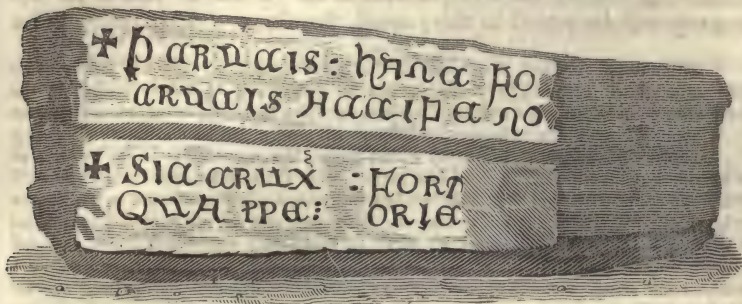 ✠ Ꝑ CRUCIS: hANC FO
CRUCIS ACCIPE NO
✠ SIC CRUX : FORT
QUA PPE: ORIE